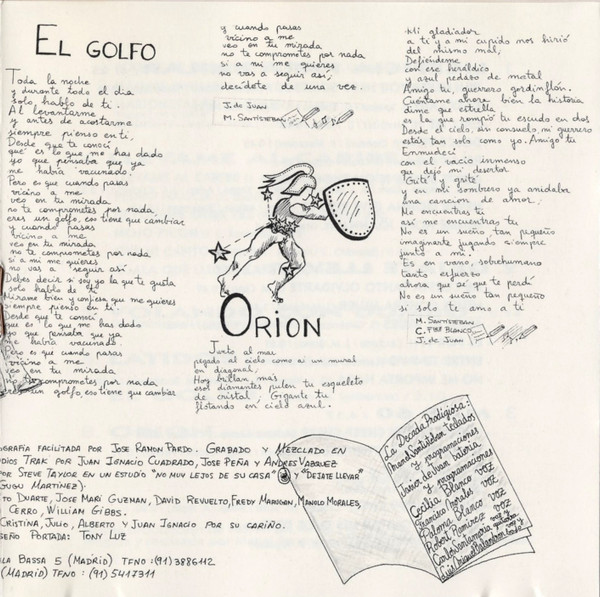 EL GOLFO
Toda la noche
y durante todo el dia
solo hablo de ti.
Al levantarme
y antes de acostarme
siempre pienso en ti.
Desde que te conocí
qué es lo que me has dado
yo que pensaba que ya
me había vacunado.
Pero es que cuando pasas
vicino a me
veo en tu mirada
no te comprometes por nada
eres un golfo, eso tiene que cambiar
y cuando pasas
vicino a me
veo en tu mirada
no te comprometes por nada
si a mi me quieres
no vas a seguir así
Debes decir si soy yo la que te gusta
solo hablo de ti
Mírame bien y confiesa que me quieres
siempre pienso en ti.
Desde que te conocí
que es lo que me has dado
yo que pensaba que ya
me había vacunado.
Pero es que cuando pasas
vicino a me
veo en tu mirada
no te comprometes por nada
eres un golfo, eso tiene que cambiar
y cuando pasas
vicino a me
veo en tu mirada
no te comprometes por nada
si a mi me quieres
no vas a seguir así,
decídete de una vez.
J. de Juan
M. Santisteban
ORION
Junto al mar
pegado al cielo como si un mural
en diagonal,
Hoy brillan más
esos diamantes pulen tu esqueleto
de cristal, Gigante tú
flotando en cielo azul.
Mi gladiador
a ti y a mi cupido nos hirió
del mismo mal,
Defiéndeme
con ese heráldico
y azul pedazo de metal
Amigo tú, guerrero gordinflón.
Cuéntame ahora bien la historia
dime que estrella
es la que rompió tu escudo en dos
Desde el cielo, sin consuelo mi guerrero
estás tan solo como yo. Amigo tú
Enmudecí
con el vacío inmenso
que dejó mi desertor
Grité y grité
y en mi sombrero ya anidaba
una canción de amor.
Me encuentras tú
así me encuentras tú
No es un sueño tan pequeño
imaginarte jugando siempre
junto a mi.
Es en vano, sobrehumano
tanto esfuerzo
ahora que sé que te perdí
No es un sueño tan pequeño
si solo te amo a ti
M. Santisteban
C. Fdez Blanco
J. de Juan
OGRAFÍA FACILITADA POR JOSE RAMON PARDO. GRABADO Y MEZCLADO EN
DIOS TRAK POR JUAN IGNACIO CUADRADO, JOSE PEÑA Y ANDRES VAZQUEZ
POR STEVE TAYLOR EN UN ESTUDIO "NO MUY LEJOS DE SU CASA" Y "DEJATE LLEVAR"
GUGU MARTINEZ).
TO DUARTE, JOSE MARI GUZMAN, DAVID REVUELTO, FREDY MARUGAN, MANOLO MORALES,
CERRO, WILLIAM GIBBS.
CRISTINA, JULIO, ALBERTO Y JUAN IGNACIO POR SU CARIÑO.
SEÑO PORTADA: TONY LUZ
LA BASSA 5 (MADRID) TFNO: (91) 3886112
(MADRID) TFNO: (91) 5417311
La Década Prodigiosa:
Manuel Santisteban teclados
y programaciones
Javier de Juan batería
y programaciones
Cecilia Blanco voz
Francisco Morales voz
Paloma Blanco voz
Robert Ramirez voz
Carlos Santamaría guitarra